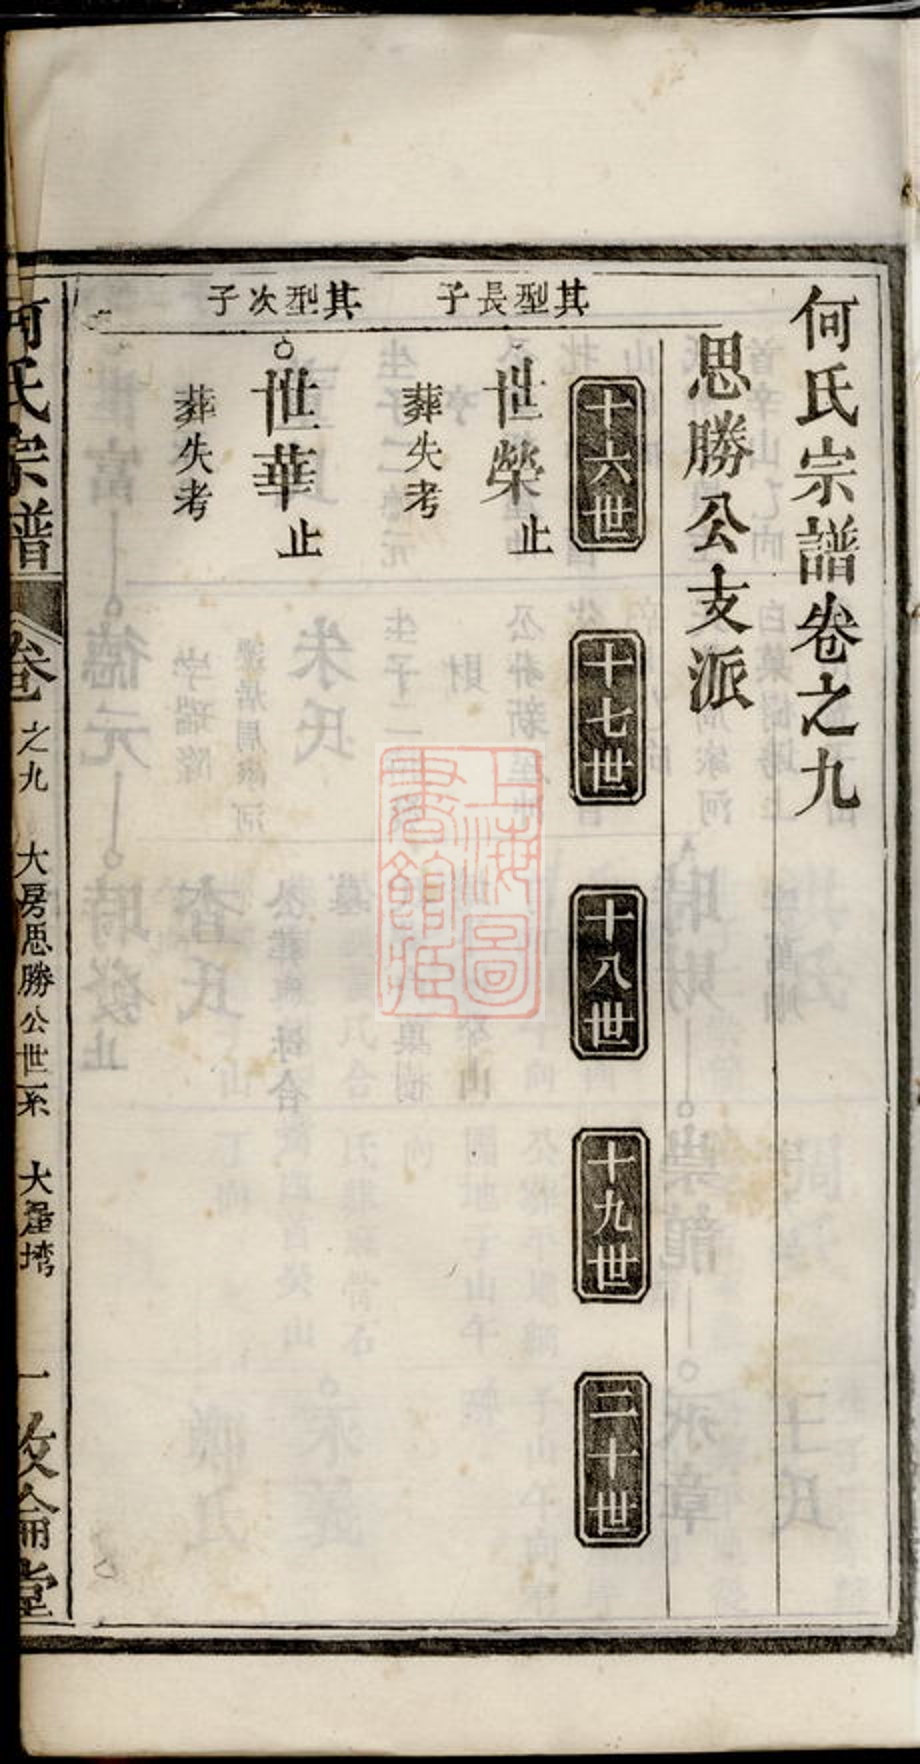 何氏宗譜卷之九
思勝公支派
十六世
十七世
十八世
十九世
二十世
其型長子
世榮止
葬失考
其型次子
世華止
葬失考
何氏宗譜
卷之九
大房思勝公世系
大窪塆
一
敦倫堂
上海圖書館藏